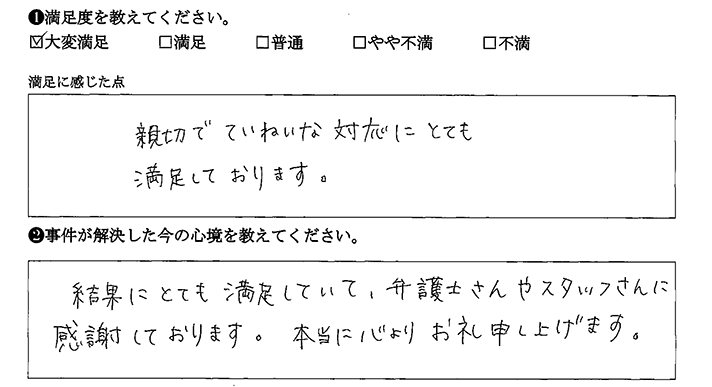 ❶満足度を教えてください。
☑大変満足 □満足 □普通 □やや不満 □不満
満足に感じた点
親切で ていねいな 対応に とても
満足して おります。
❷事件が解決した今の心境を教えてください。
結果に とても 満足していて、弁護士さんやスタッフさんに
感謝しております。 本当に心より お礼申し上げます。